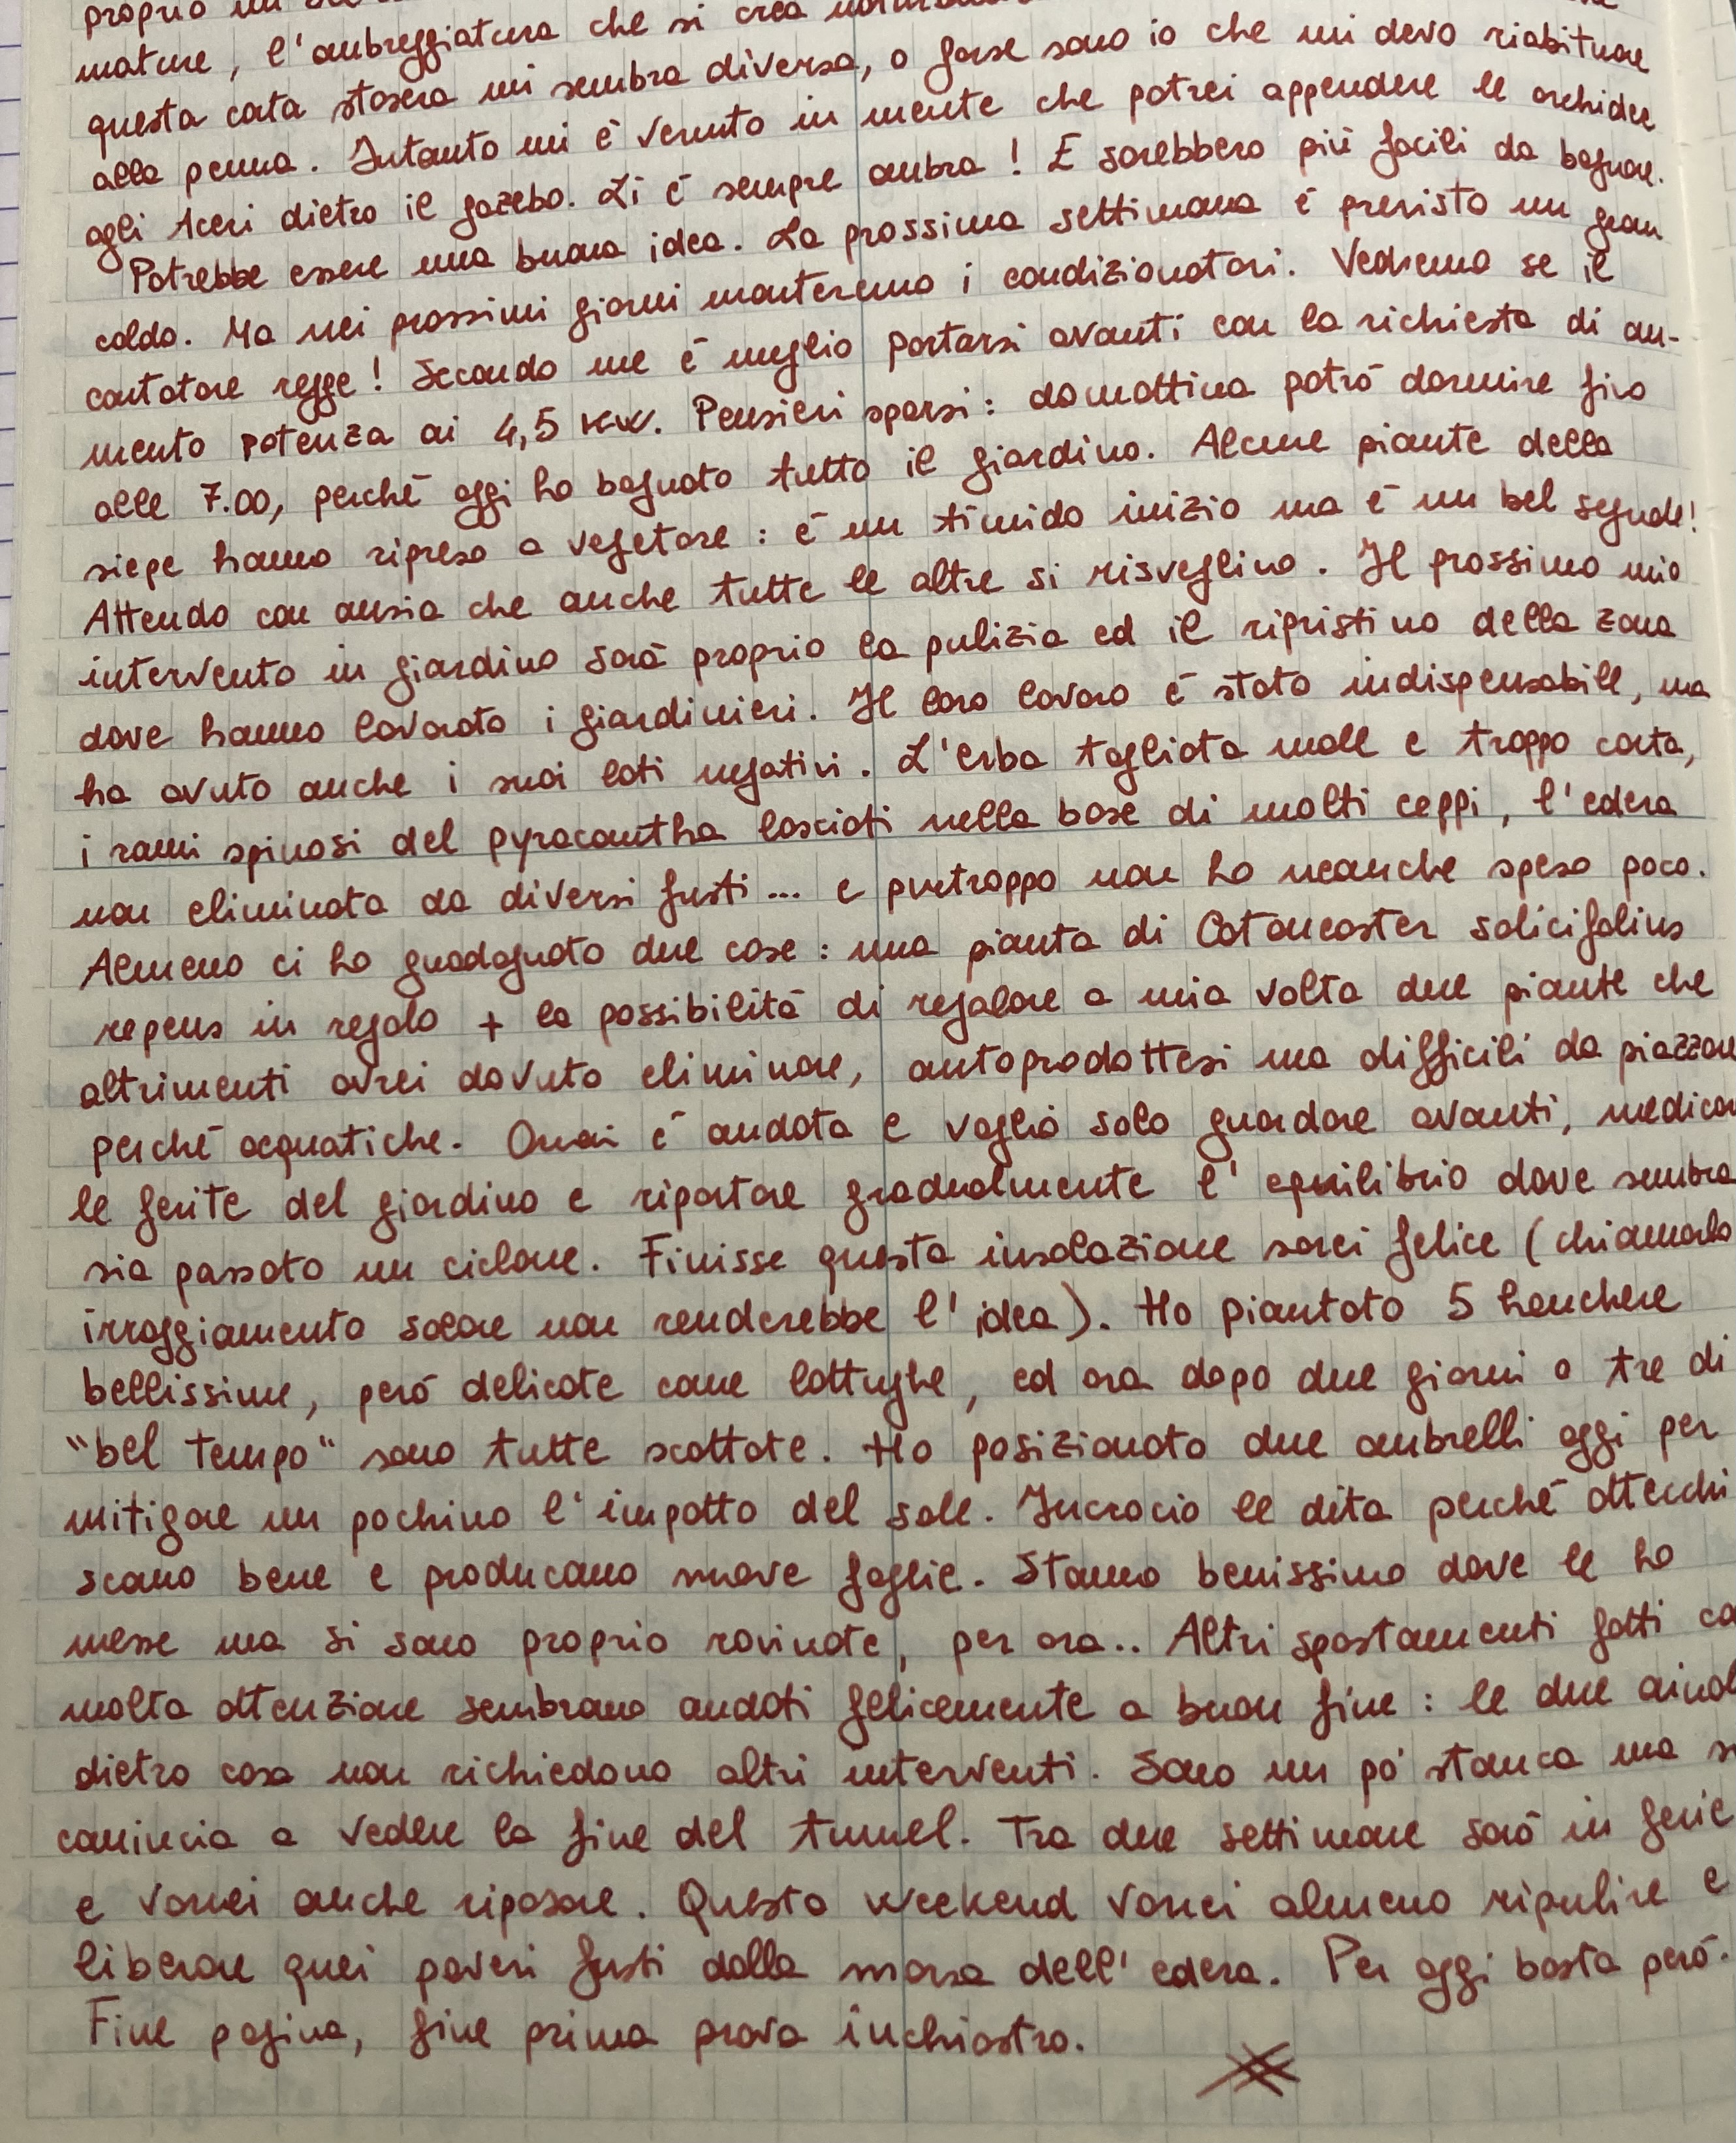 proprio un
mature, l'ombreggiatura che si crea
questa carta stasera mi sembra diversa, o forse sono io che mi devo riabituare
alla penna. Intanto mi è venuto in mente che potrei appendere le orchidee
agli Aceri dietro il gazebo. Lì è sempre ombra! E sarebbero più facili da bagnare.
Potrebbe essere una buona idea. La prossima settimana è previsto un gran
caldo. Ma nei prossimi giorni monteremo i condizionatori. Vedremo se il
contatore regge! Secondo me è meglio portarsi avanti con la richiesta di au-
mento potenza ai 4,5 kw. Pensieri sparsi: domattina potrò dormire fino
alle 7.00, perché oggi ho bagnato tutto il giardino. Alcune piante della
siepe hanno ripreso a vegetare: è un timido inizio ma è un bel segnale!
Attendo con ansia che anche tutte le altre si risveglino. Il prossimo mio
intervento in giardino sarà proprio la pulizia ed il ripristino della zona
dove hanno lavorato i giardinieri. Il loro lavoro è stato indispensabile, ma
ha avuto anche i suoi lati negativi. L'erba tagliata male e troppo corta,
i rami spinosi del pyracantha lasciati nella base di molti ceppi, l'edera
non eliminata da diversi fusti... e purtroppo non ho neanche speso poco.
Almeno ci ho guadagnato due cose: una pianta di Cotoneaster salicifolius
repens in regalo + la possibilità di regalare a mia volta due piante che
altrimenti avrei dovuto eliminare, autoprodottesi ma difficili da piazzare
perché acquatiche. Ormai è andata e voglio solo guardare avanti, medicar
le ferite del giardino e riportare gradualmente l'equilibrio dove sembra
sia passato un ciclone. Finisse questa insolazione sarei felice (chiamarlo
irraggiamento solare non renderebbe l'idea). Ho piantato 5 heuchere
bellissime, però delicate come lattughe, ed ora dopo due giorni o tre di
"bel tempo" sono tutte scottate. Ho posizionato due ombrelli oggi per
mitigare un pochino l'impatto del sole. Incrocio le dita perché attecchi
scano bene e producano nuove foglie. Stanno benissimo dove le ho
messe ma si sono proprio rovinate, per ora.. Altri spostamenti fatti co
molta attenzione sembrano andati felicemente a buon fine: le due aiuol
dietro casa non richiedono altri interventi. Sono un po' stanca ma s
comincia a vedere la fine del tunnel. Tra due settimane sarò in ferie
e vorrei anche riposare. Questo weekend vorrei almeno ripulire e
liberare quei poveri fusti dalla morsa dell'edera. Per oggi basta però.
Fine pagina, fine prima prova inchiostro.